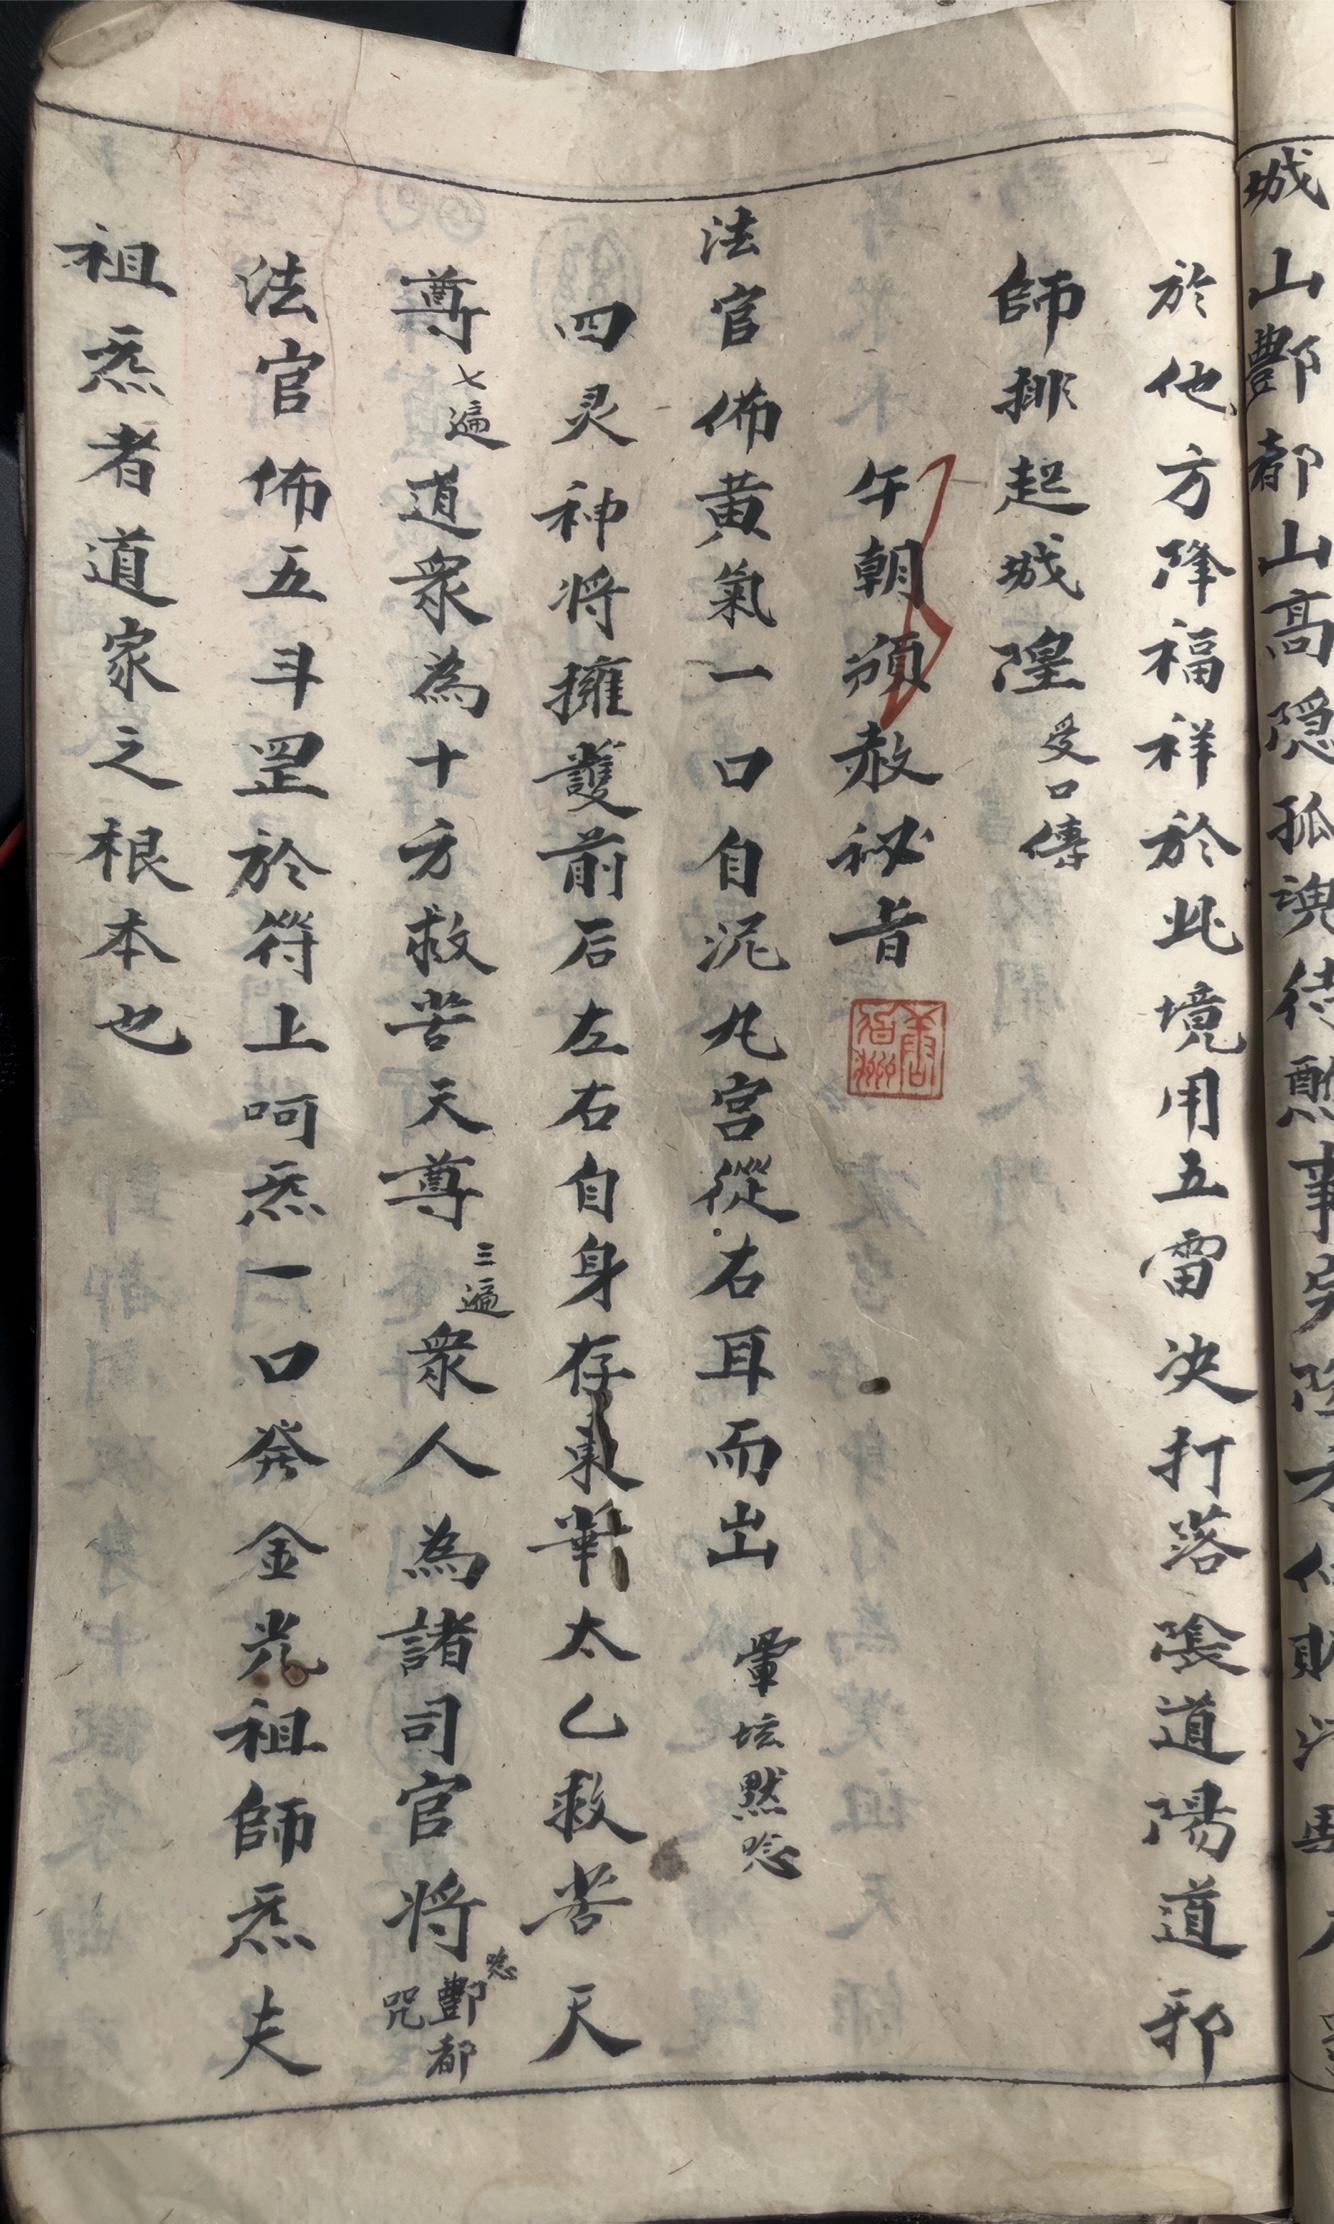 城山酆都山高隐孤魂待醮事完
於他方降福祥於此境用五雷决打落陰道陽道邪
師排起城隍受口傳
午朝頒赦祕旨
法官佈黄氣一口自泥丸宫從右耳而出 暈坛默念
四灵神将擁護前后左右自身存東華太乙救苦天
尊七遍道衆為十方救苦天尊三遍衆人為諸司官将念酆都咒
法官佈五斗罡於符上呵炁一口発金光祖師炁夫
祖炁者道家之根本也